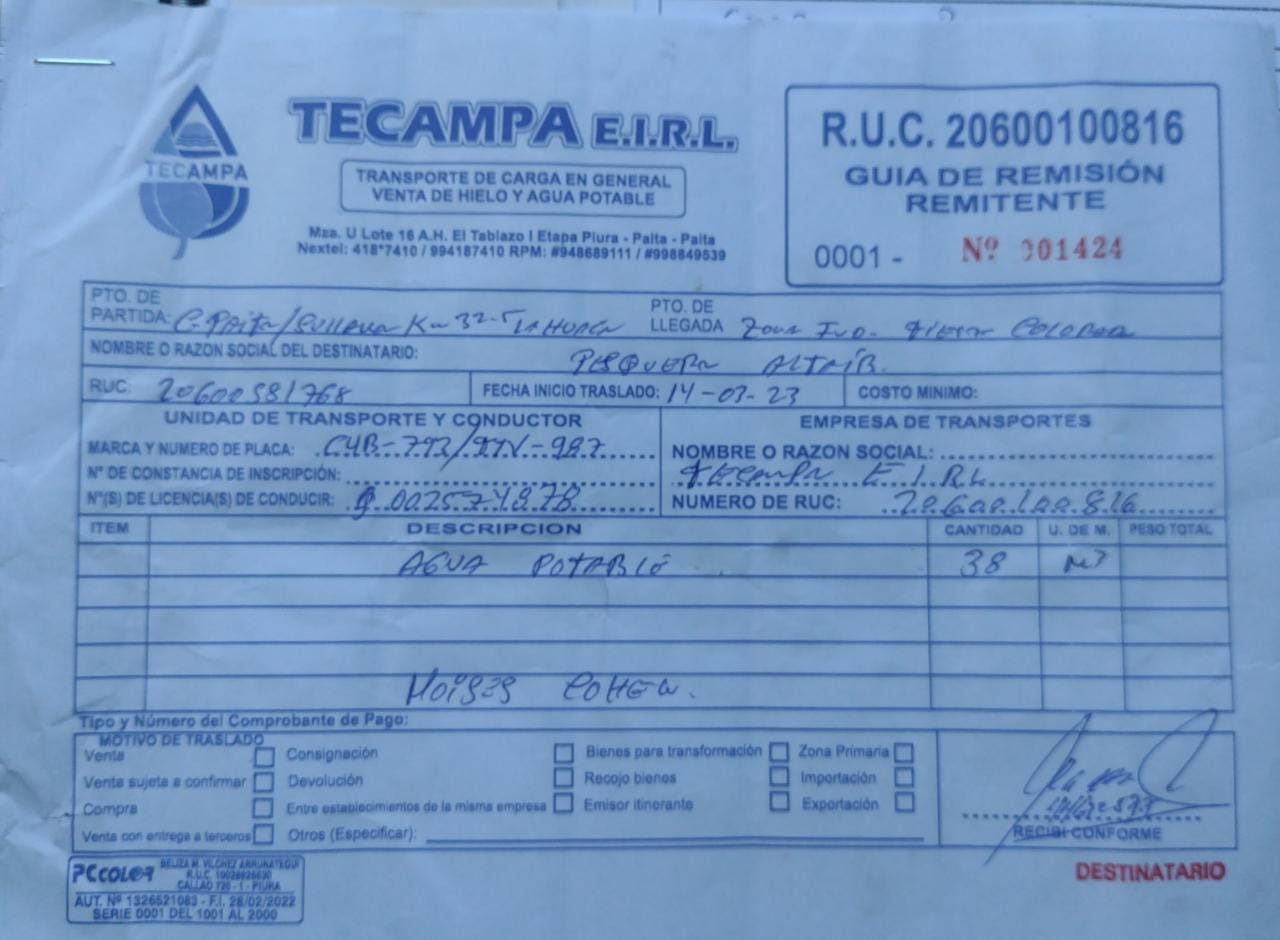 TECAMPA
TECAMPA E.I.R.L.
TRANSPORTE DE CARGA EN GENERAL
VENTA DE HIELO Y AGUA POTABLE
Mza. U Lote 16 A.H. El Tablazo I Etapa Piura - Paita - Paita
Nextel: 418*7410 / 994187410 RPM: #948689111 / #998849539
R.U.C. 20600100816
GUIA DE REMISIÓN
REMITENTE
0001 - Nº 001424
PTO. DE PARTIDA: C. Paita/Sullana Km 32-5 La Huaca
PTO. DE LLEGADA Zona Ind. Tierra Colorada
NOMBRE O RAZON SOCIAL DEL DESTINATARIO: PESQUERA ALTAIR.
RUC: 20600581768 FECHA INICIO TRASLADO: 14-03-23 COSTO MINIMO:
UNIDAD DE TRANSPORTE Y CONDUCTOR
MARCA Y NUMERO DE PLACA:
Nº DE CONSTANCIA DE INSCRIPCIÓN:
Nº(S) DE LICENCIA(S) DE CONDUCIR:
EMPRESA DE TRANSPORTES
NOMBRE O RAZON SOCIAL:
Tecampa E.I.R.L
NUMERO DE RUC: 20600100816
ITEM DESCRIPCION CANTIDAD U. DE M. PESO TOTAL
AGUA POTABLE 38 M3
MOISES
Tipo y Número del Comprobante de Pago:
MOTIVO DE TRASLADO
Venta Consignación Bienes para transformación Zona Primaria
Venta sujeta a confirmar Devolución Recojo bienes Importación
Compra Entre establecimientos de la misma empresa Emisor itinerante Exportación
Venta con entrega a terceros Otros (Especificar):
RECIBI CONFORME
DESTINATARIO
PCcolor
BELIZA M. VILCHEZ ARRUNATEGUI
CALLAO 720 - 1 - PIURA
AUT. Nº 1326521083 - F.I. 28/02/2022
SERIE 0001 DEL 1001 AL 2000